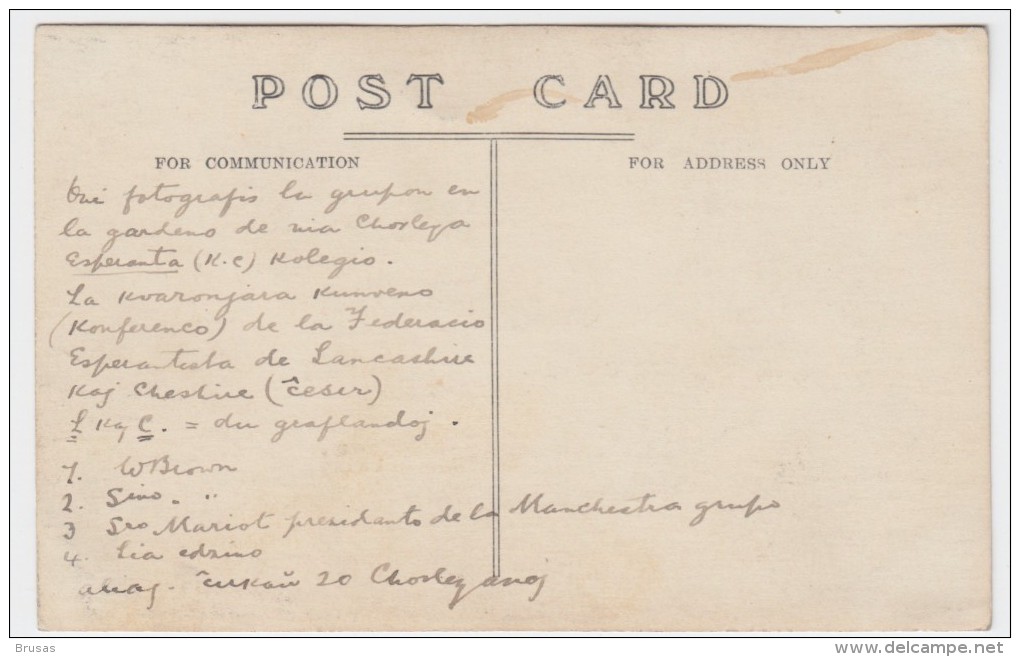 POST CARD
FOR COMMUNICATION
FOR ADDRESS ONLY
Oni fotografis la grupon en
la gardeno de nia Chorleya
Esperanta (K.C) Kolegio.
La Kvaronjara Kunveno
(Konferenco) de la Federacio
Esperantista de Lancashire
Kaj Cheshire (Ĉeŝir)
L Kaj C. = du graflandoj.
1. W Brown
2. Sino. "
3 Sro Mariot prezidanto de la Manchestra grupo
4. Lia edzino
aliaj. ĉirkaŭ 20 Chorleyanoj
Brusas
www.delcampe.net